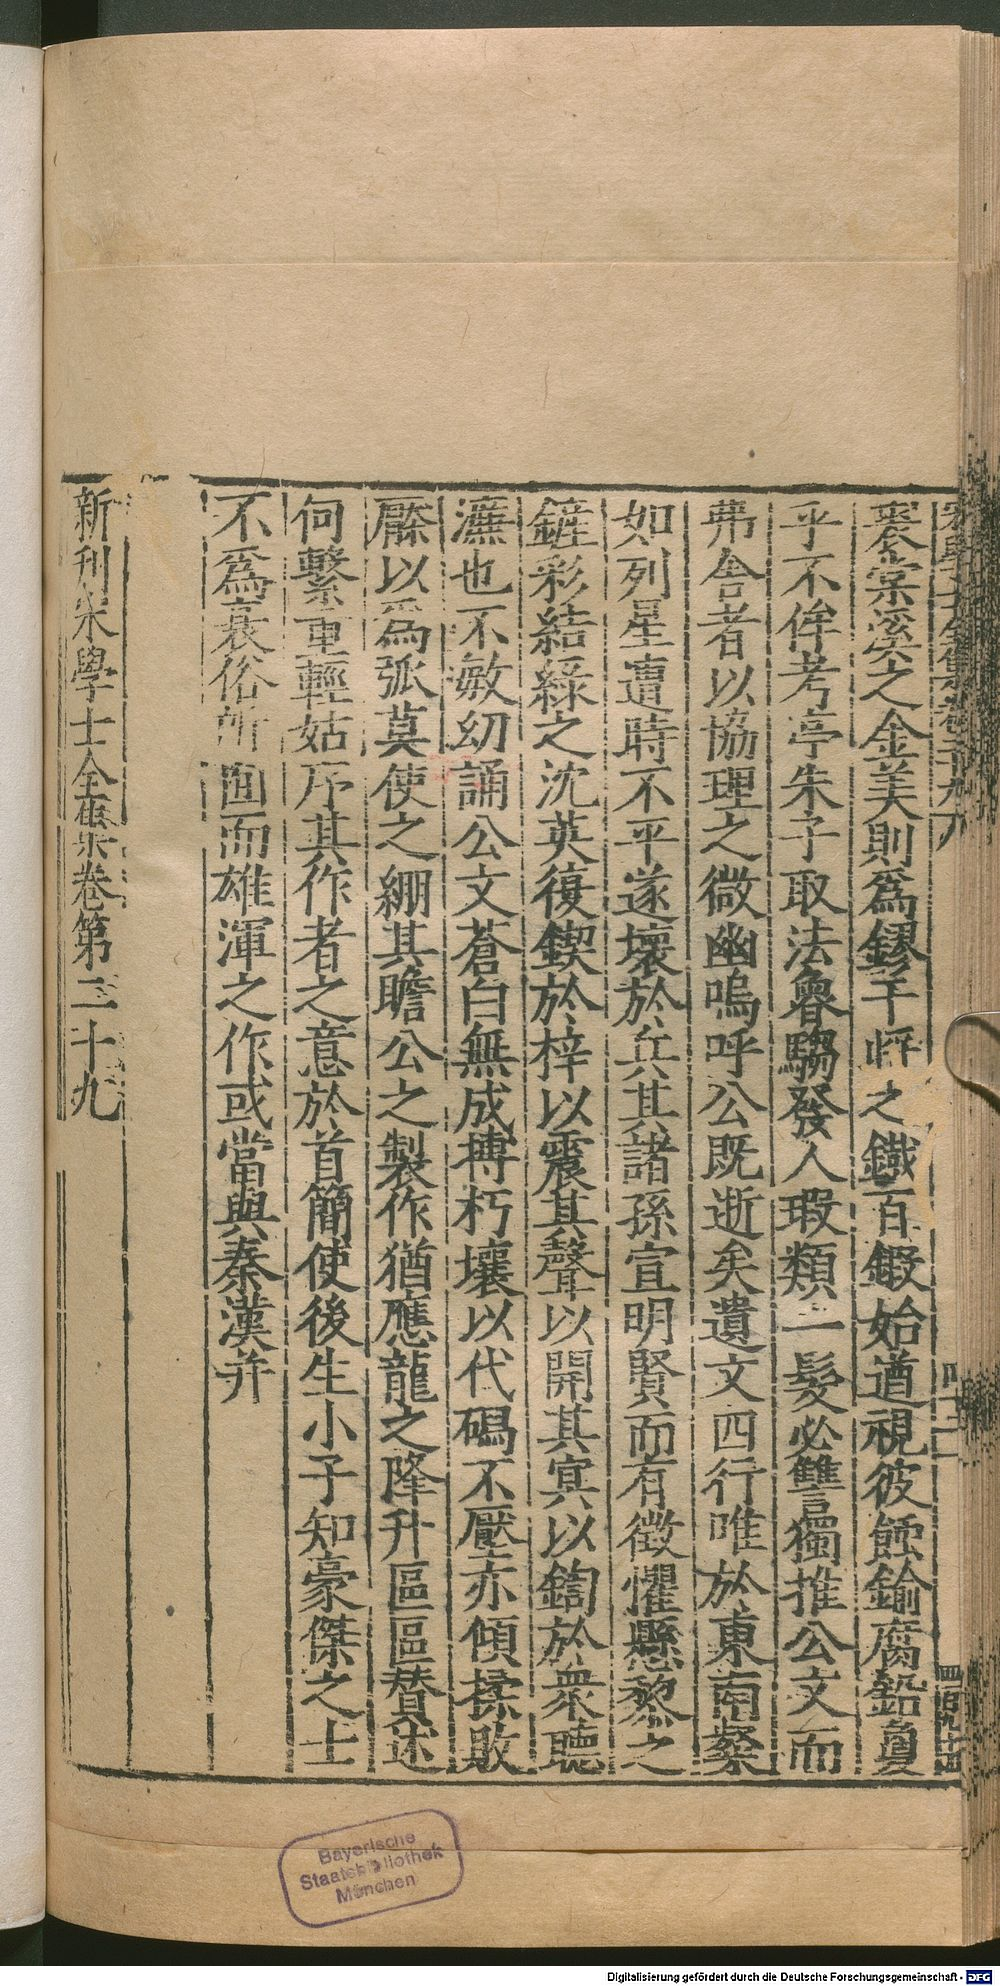 宋學士全集卷二十九
四十二
四百九十四
裘棠溪之金美則爲鏐干將之鐵百鍛始遒視彼餘鍮腐鉛夐
乎不侔考亭朱子取法魯騶發人瑕類一髮必讐獨推公文而
弗舍者以協理之微幽嗚呼公既逝矣遺文四行唯於東南粲
如列星遭時不平遂壞於兵其諸孫宣明賢而有徵懼懸黎之
鏟彩結綠之沈英復鍥於梓以震其聲以開其冥以鍧於衆聽
濂也不敏幼誦公文蒼白無成摶朽壤以代碣不壓赤傾揉敗
檿以爲弧莫使之綳其瞻公之製作猶應龍之降升區區賛述
何繫重輕姑序其作者之意於首簡使後生小子知豪傑之士
不爲衰俗所囿而雄渾之作或當與秦漢并
新刋宋學士全集卷第二十九
Bayerische
Staatsbibliothek
München
Digitalisierung gefördert durch die Deutsche Forschungsgemeinschaft - DFG